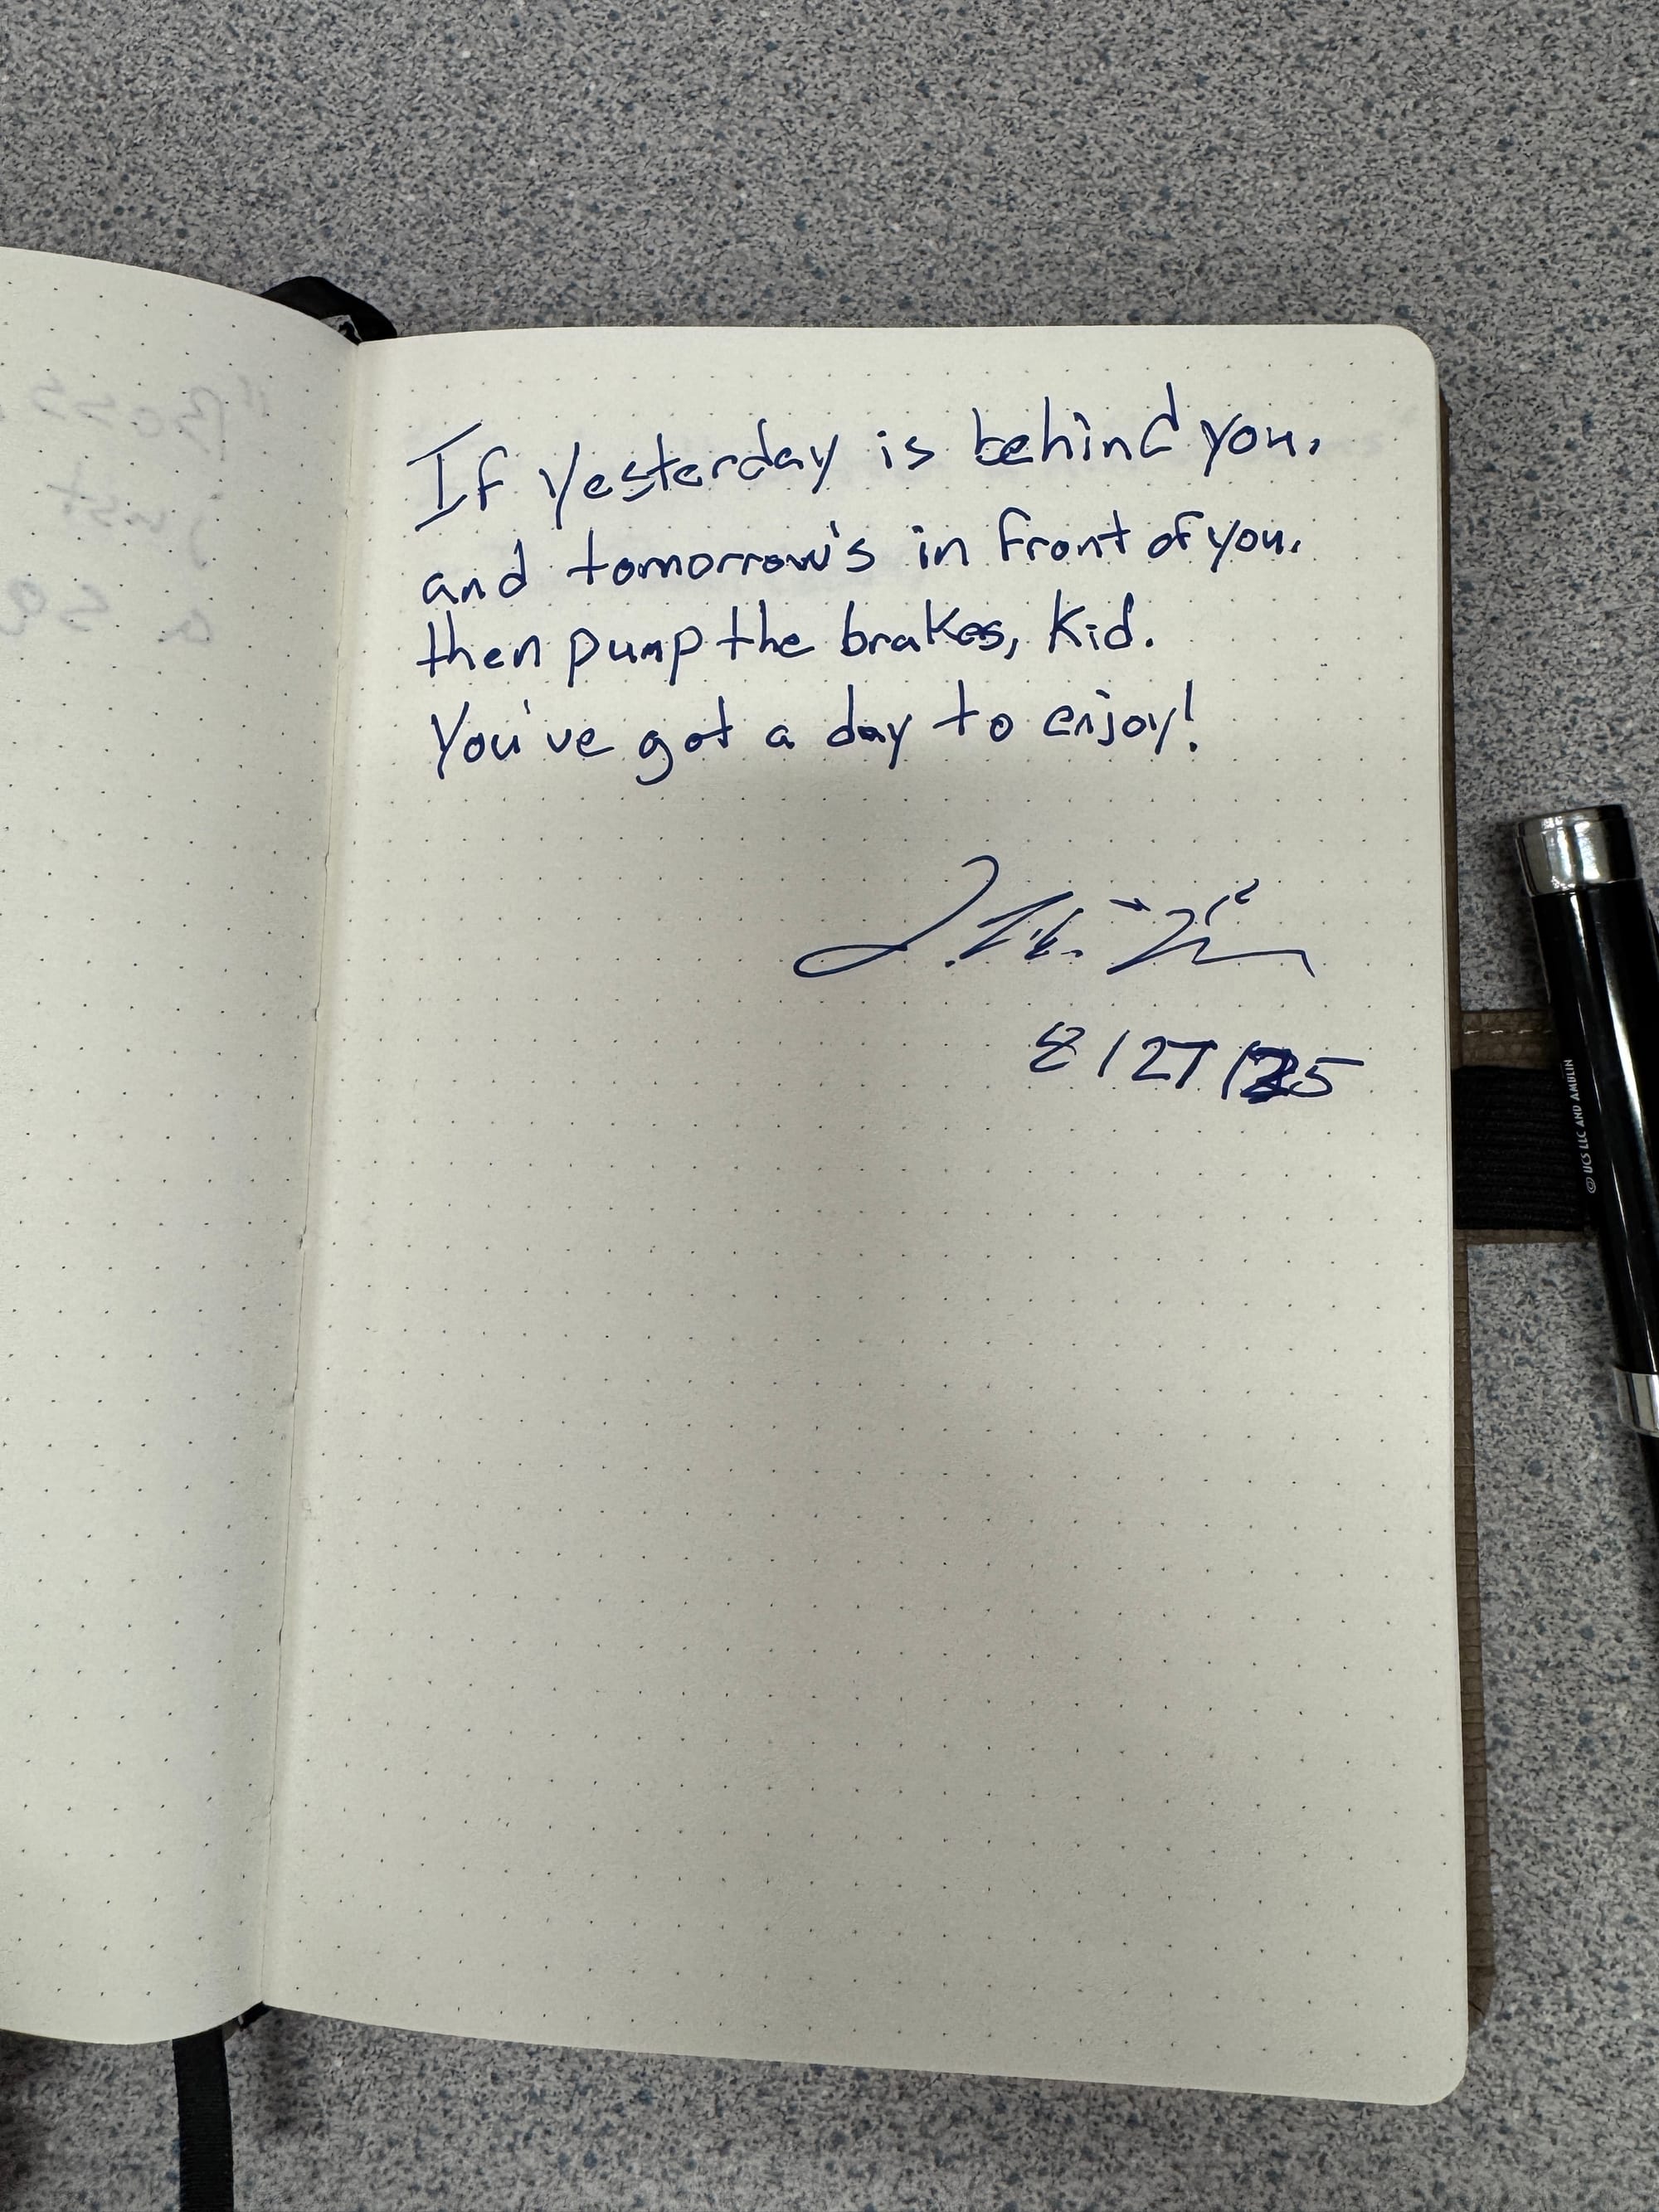 If Yesterday is behind you,
and tomorrow's in front of you,
then pump the brakes, kid.
You've got a day to enjoy!
8/27/25
© UCS LLC AND AMBLIN
"Boss,
just
a se